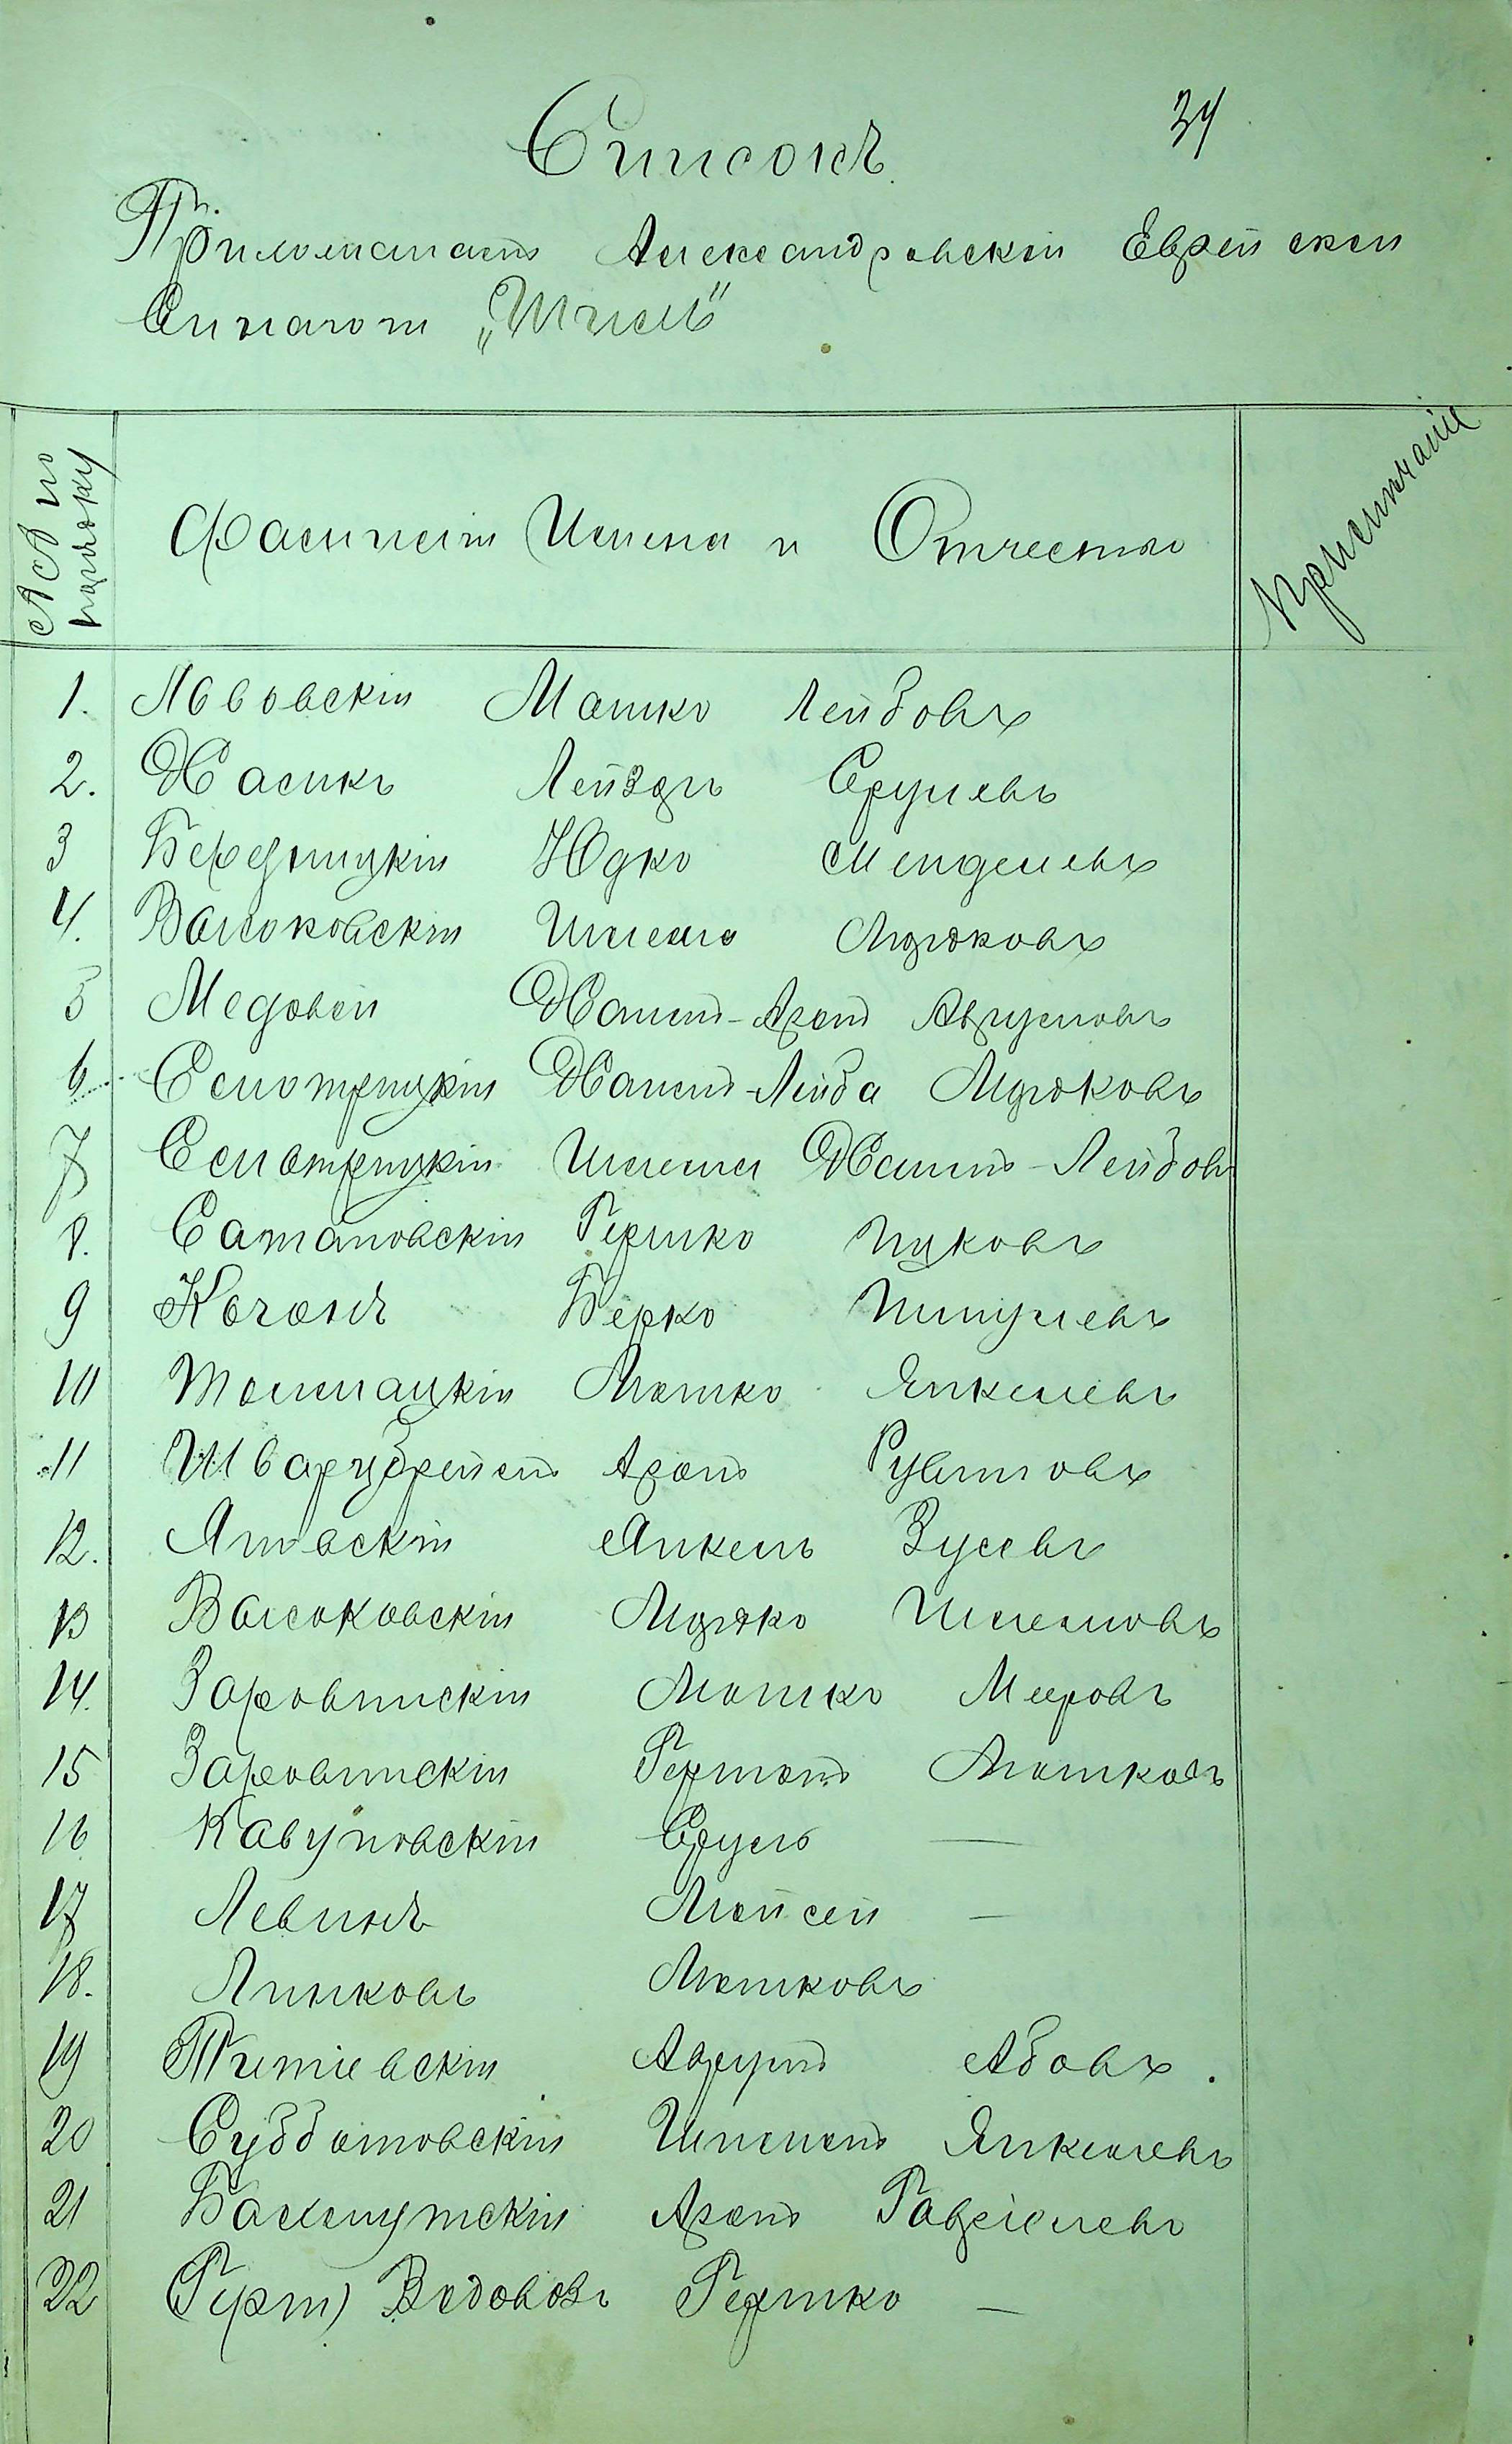 34
Списокъ
Прихожанамъ Александровскій Еврейской
Синагоги „Шпиль“
№№ по порядку
Фамиліи Имена и Отчество
Примѣчаніе
1. Львовскій Мошко Лейбовъ
2. Хасикъ Лейзеръ Срулевъ
3 Бередницкій Юдко Менделевъ
4. Вольковскій Шлемо Мордковъ
5 Медовой Хаимъ-Аронъ Аврумовъ
6. Смотрицкій Хаимъ-Лейба Мордковъ
7 Смотрицкій Шлема Хаимъ-Лейбовъ
8. Сатановскій Гершко Ицковъ
9 Коганъ Берко Шмулевъ
10 Толмацкій Мошко Янкелевъ
11 Шварцбрейтъ Аронъ Рувиновъ
12. Ятвскій Янкель Зусевъ
13 Вольковскій Мордко Шлемовъ
14. Заровинскій Мошко Мееровъ
15 Заровинскій Германъ Мошковъ
16 Кавуновскій Сруль —
17 Левинъ Мойсей —
18. Линковъ Мошковъ
19 Тетіевскій Аврумъ Абовъ.
20 Субботовскій Шлемъ Янкелевъ
21 Бахмутскій Аронъ Гавріелевъ
22 (Гурт) Водовозъ Гершко —